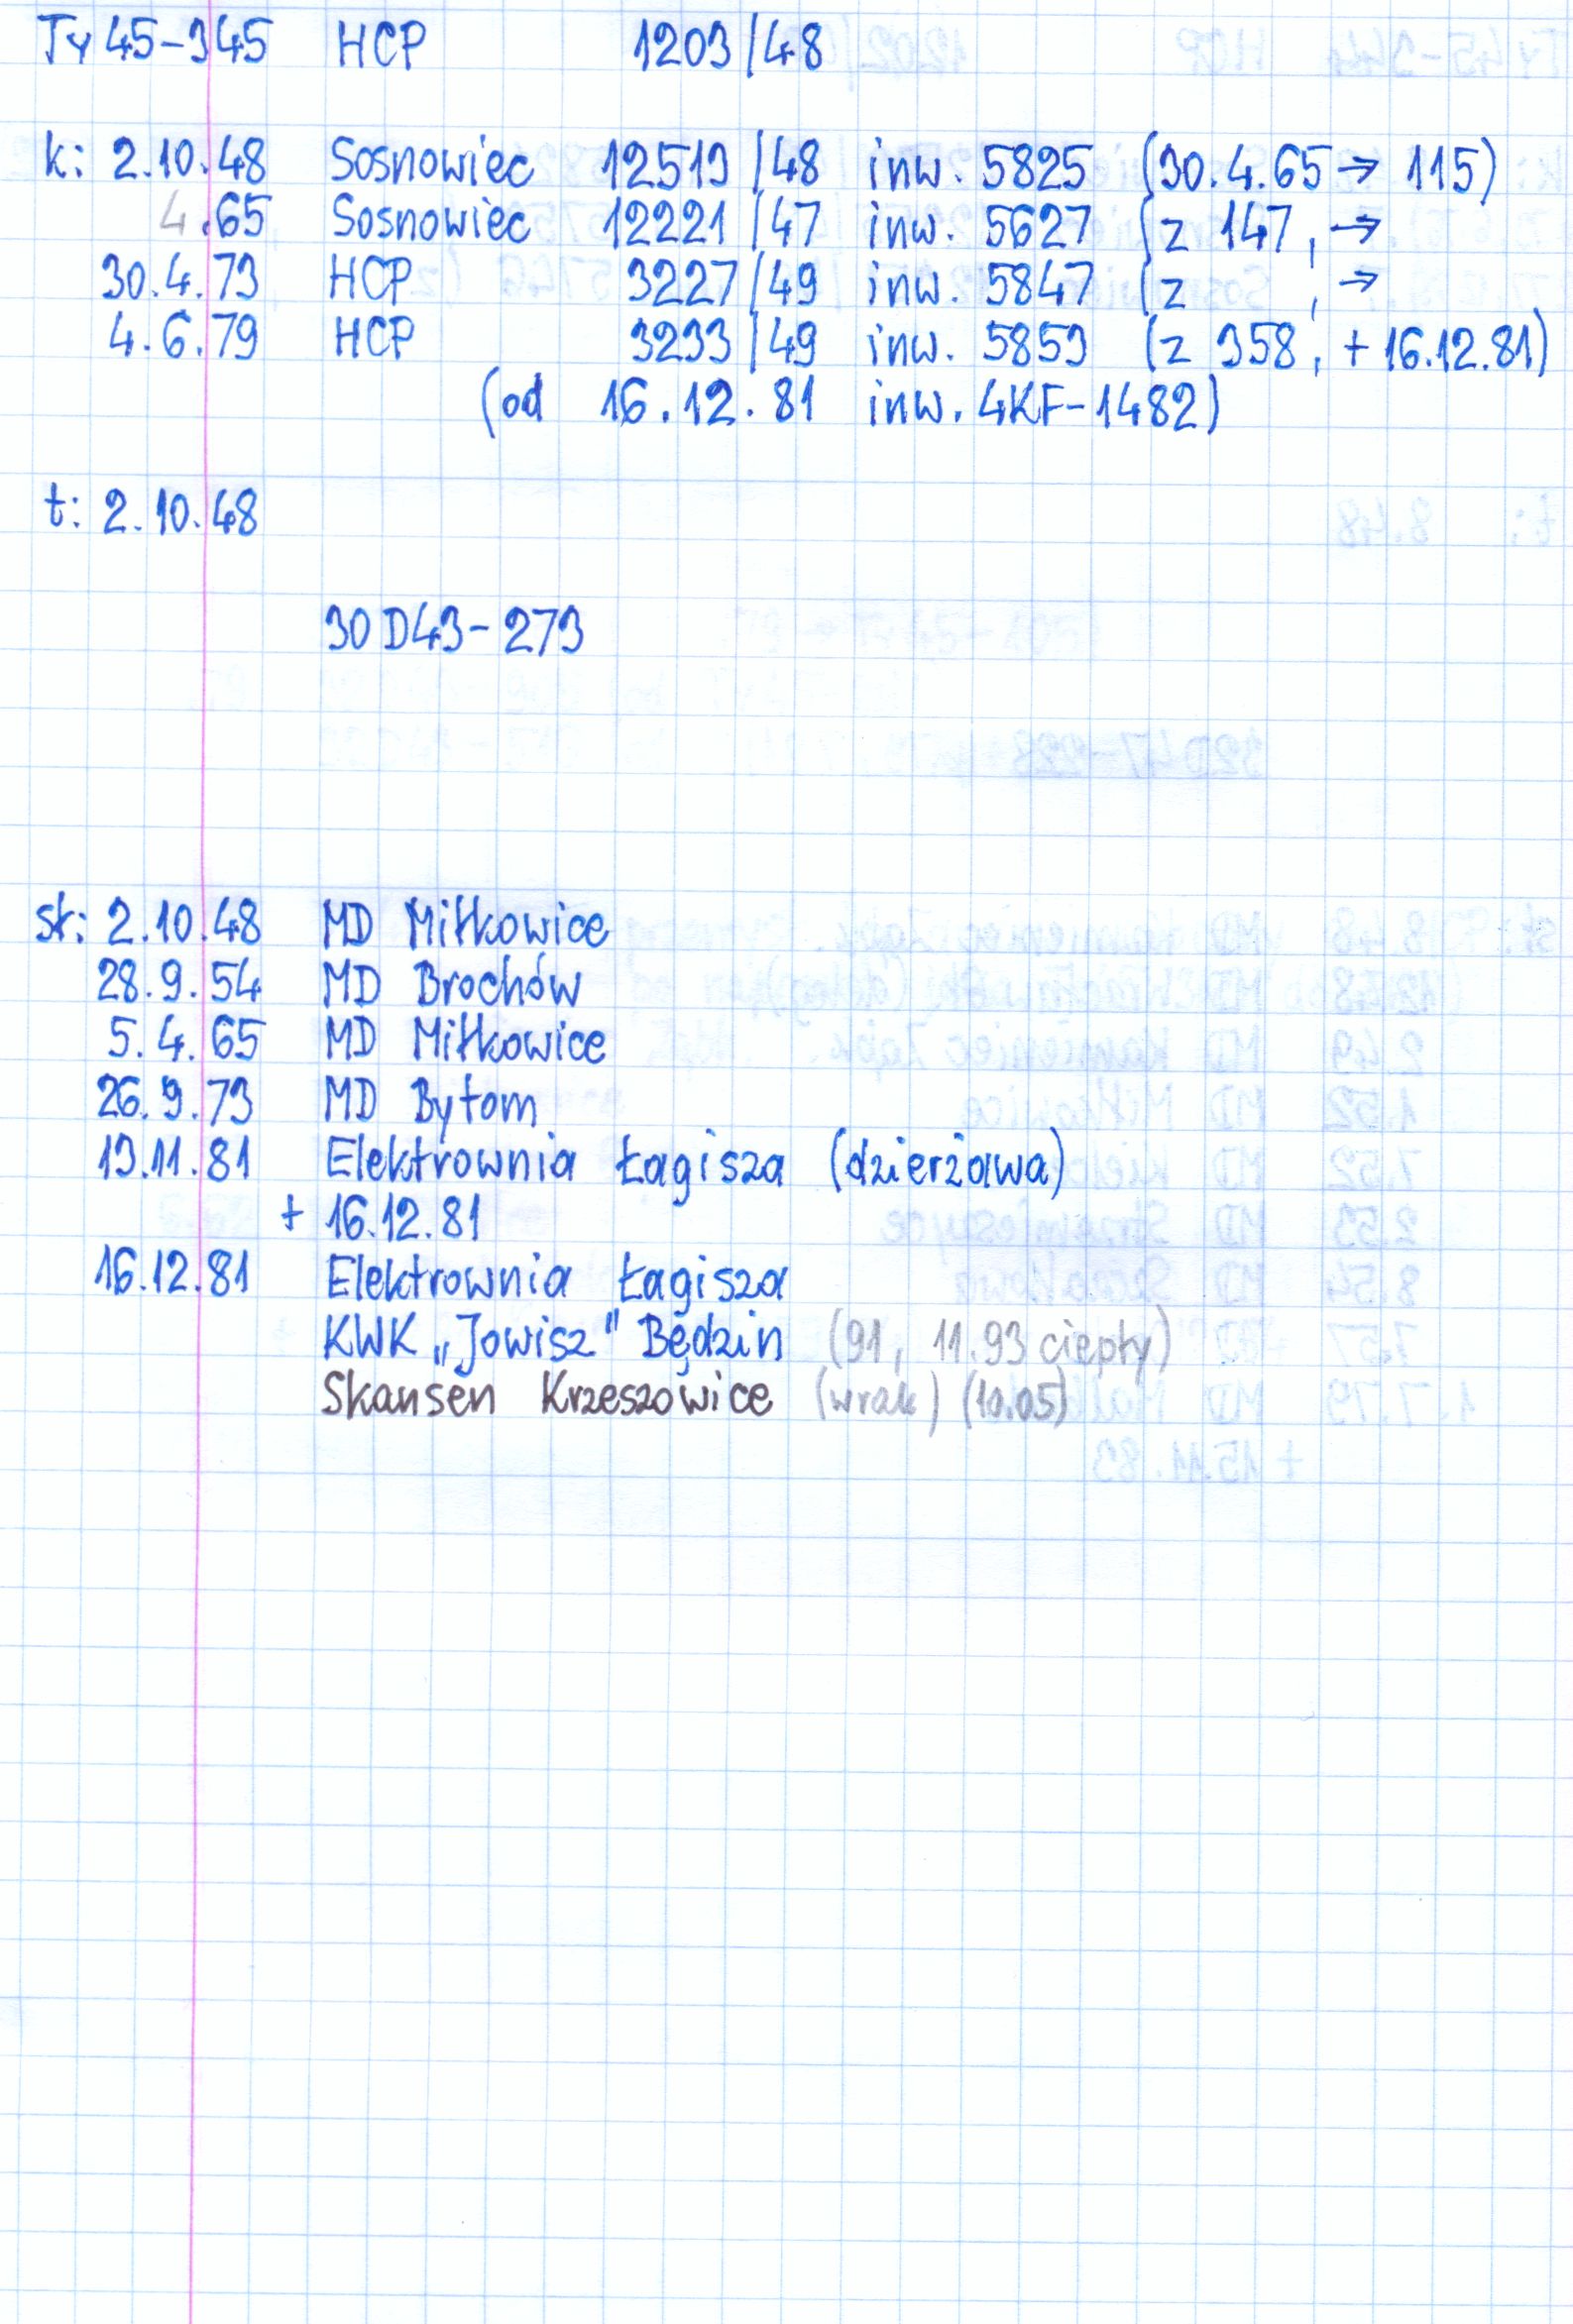 Ty45-345 HCP 1203/48
k: 2.10.48 Sosnowiec 12513/48 inw. 5825 (30.4.65 → 115)
4.65 Sosnowiec 12221/47 inw. 5627 (z 147, →
30.4.73 HCP 3227/49 inw. 5847 (z , →
4.6.79 HCP 3233/49 inw. 5853 (z 358, + 16.12.81)
(od 16.12.81 inw. 4KF-1482)
t: 2.10.48
30D43-273
st: 2.10.48 MD Miłkowice
28.9.54 MD Brochów
5.4.65 MD Miłkowice
26.9.73 MD Bytom
13.11.81 Elektrownia Łagisza (dzierżawa)
+ 16.12.81
16.12.81 Elektrownia Łagisza
KWK „Jowisz" Będzin (91, 11.93 ciepły)
Skansen Krzeszowice (wrak) (10.05)